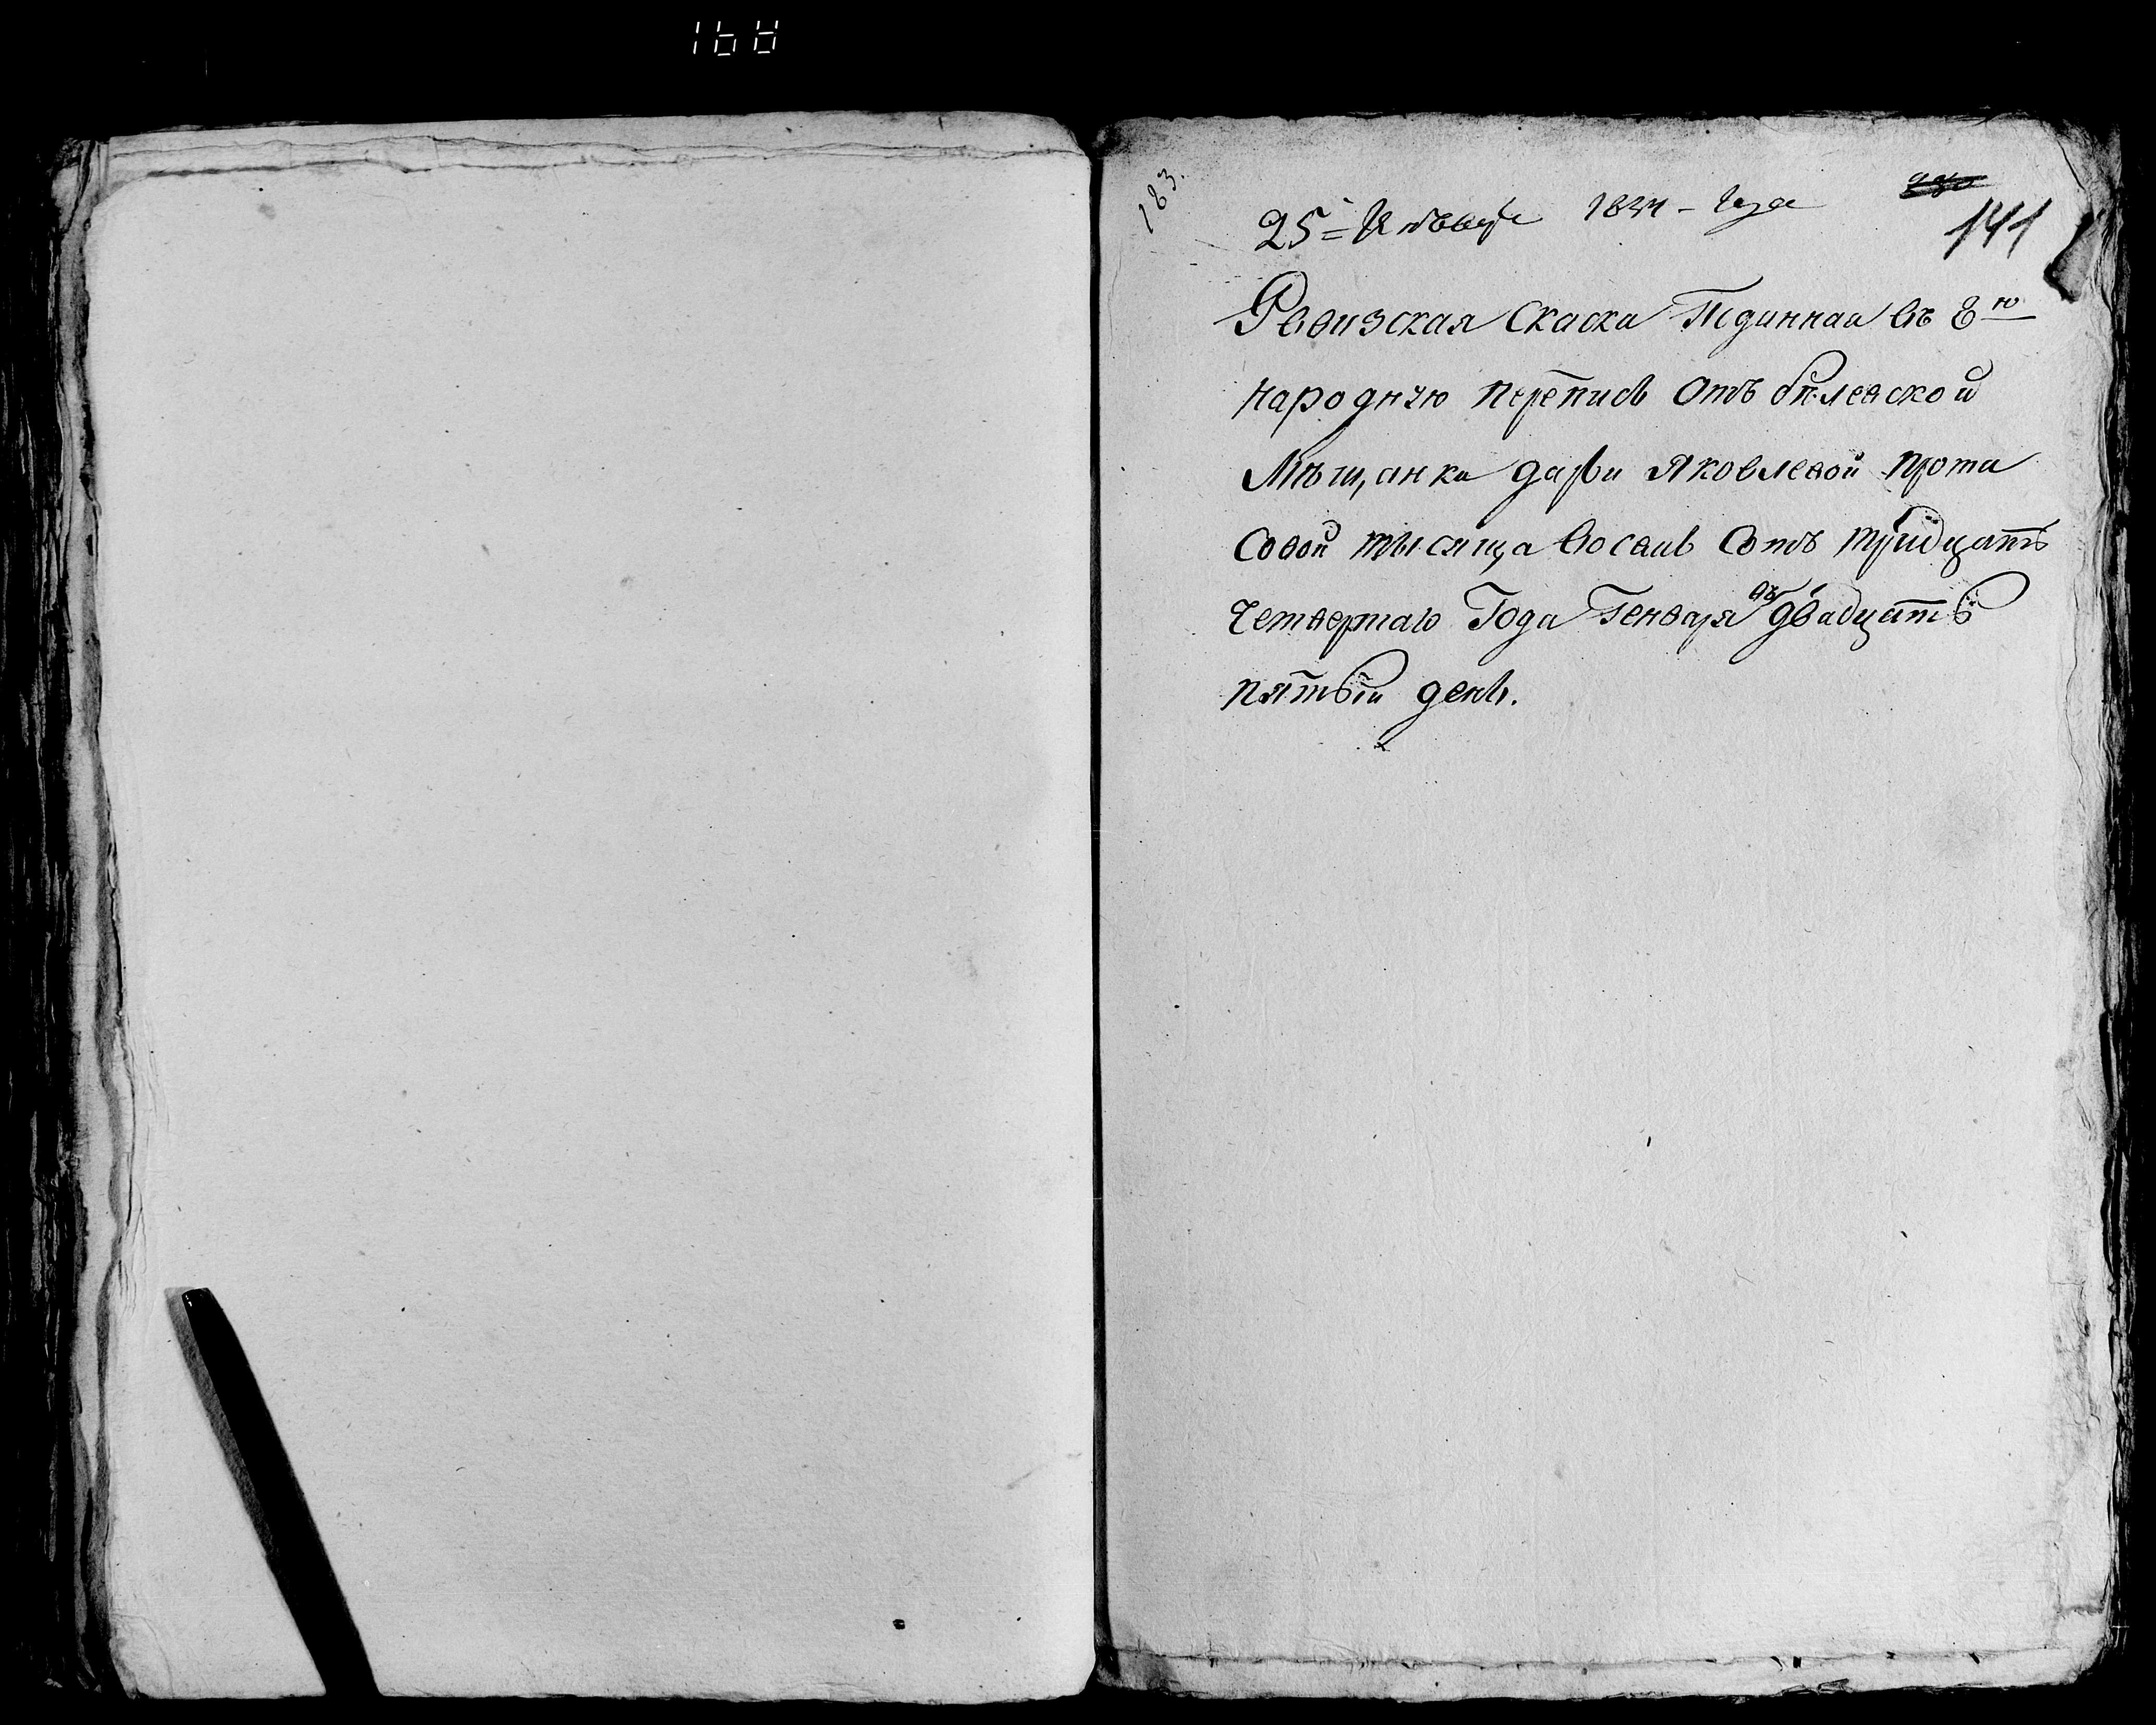 183.
25 Января 1834 - года
141
Ревизская Скаска Поданная въ 8ю
народнӱю перепись Отъ бѣлевской
Мѣщанки дарьи Яковлевой прота
совой тысяща восемь Сотъ тридцать
Четвертаго Года Генваря въ двадцать
пятый день.